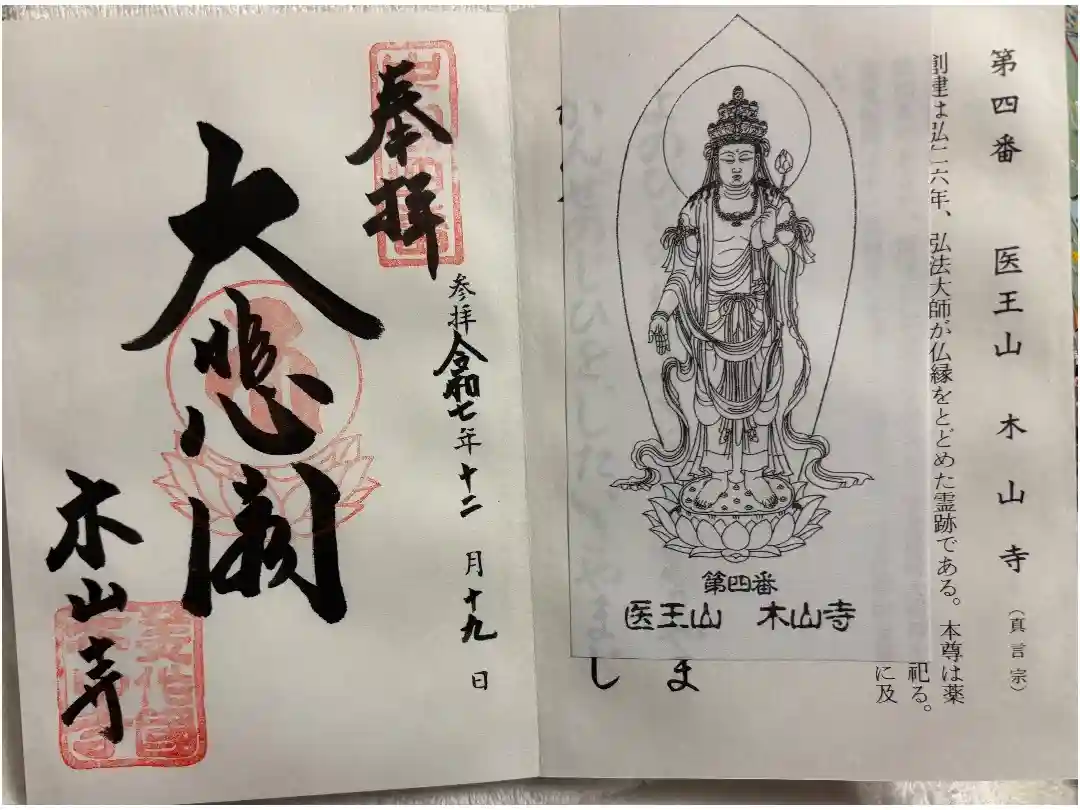 第四番 医王山 木山寺 (真言宗)
創建は弘仁六年、弘法大師が仏縁をとどめた霊跡である。本尊は薬
祀る。
に及
ま
し
第四番
医王山 木山寺
奉拝
参拝令和七年十二月十九日
大悲閣
木山寺